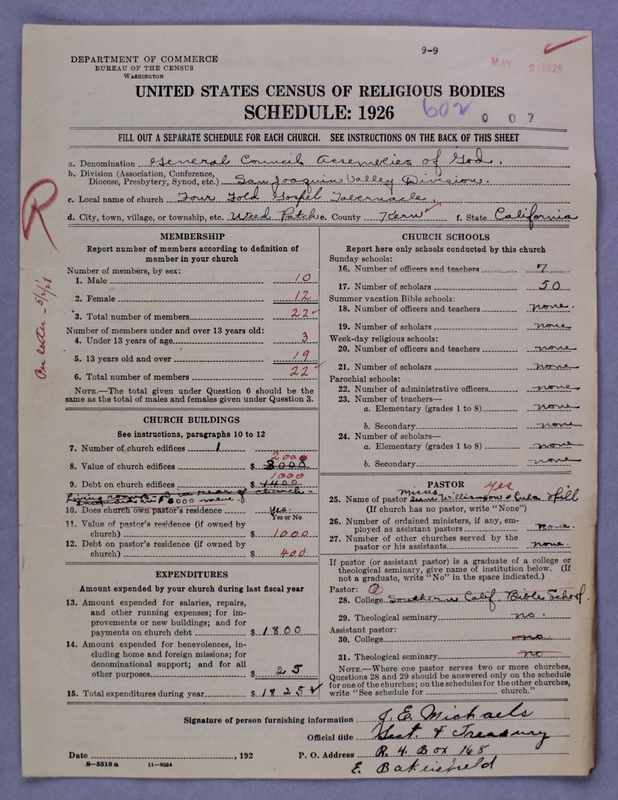 9-9
MAY 2 1928
DEPARTMENT OF COMMERCE
BUREAU OF THE CENSUS
WASHINGTON
UNITED STATES CENSUS OF RELIGIOUS BODIES
SCHEDULE: 1926
602 0 0 7
FILL OUT A SEPARATE SCHEDULE FOR EACH CHURCH. SEE INSTRUCTIONS ON THE BACK OF THIS SHEET
a. Denomination General Council Assemblies of God.
b. Division (Association, Conference,
Diocese, Presbytery, Synod, etc.) San Joaquin Valley Division.
c. Local name of church Four Fold Gospel Tabernacle.
d. City, town, village, or township, etc. Weed Patch e. County Kern f. State California
R
MEMBERSHIP
Report number of members according to definition of
member in your church
Number of members, by sex:
1. Male 10
2. Female 12
3. Total number of members 22
Number of members under and over 13 years old:
4. Under 13 years of age 3
5. 13 years old and over 19
6. Total number of members 22
NOTE.—The total given under Question 6 should be
same as the total of males and females given under Question 3.
CHURCH BUILDINGS
See instructions, paragraphs 10 to 12
7. Number of church edifices 1
2000
8. Value of church edifices $ 3000
1000
9. Debt on church edifices $ 1400
10. Does church own pastor's residence? Yes.
Yes or No
11. Value of pastor's residence (if owned by
church) $ 1000
12. Debt on pastor's residence (if owned by
church) $ 400
EXPENDITURES
Amount expended by your church during last fiscal year
13. Amount expended for salaries, repairs,
and other running expenses; for im-
provements or new buildings; and for
payments on church debt $ 1800
14. Amount expended for benevolences, in-
cluding home and foreign missions; for
denominational support; and for all
other purposes $ 25
15. Total expenditures during year $ 1825
CHURCH SCHOOLS
Report here only schools conducted by this church
Sunday schools:
16. Number of officers and teachers 7
17. Number of scholars 50
Summer vacation Bible schools:
18. Number of officers and teachers none.
19. Number of scholars none
Week-day religious schools:
20. Number of officers and teachers none
21. Number of scholars none
Parochial schools:
22. Number of administrative officers none
23. Number of teachers—
a. Elementary (grades 1 to 8) none
b. Secondary none
24. Number of scholars—
a. Elementary (grades 1 to 8) none
b. Secondary none
PASTOR yes
Misses
25. Name of pastor Williamson & Hill
(If church has no pastor, write "None")
26. Number of ordained ministers, if any, em-
ployed as assistant pastors none.
27. Number of other churches served by the
pastor or his assistants none.
If pastor (or assistant pastor) is a graduate of a college or
theological seminary, give name of institution below. (If
not a graduate, write "No" in the space indicated.)
Pastor:
28. College Southern Calif. Bible School.
29. Theological seminary no.
Assistant pastor:
30. College no
31. Theological seminary no
NOTE.—Where one pastor serves two or more churches,
Questions 28 and 29 should be answered only on the schedule
for one of the churches; on the schedules for the other churches,
write "See schedule for church."
Signature of person furnishing information J. E. Michaels
Official title Sect. & Treasury
Date , 192 P. O. Address R. 4. Box 168
8-5518a 11-9054
E. Bakersfield